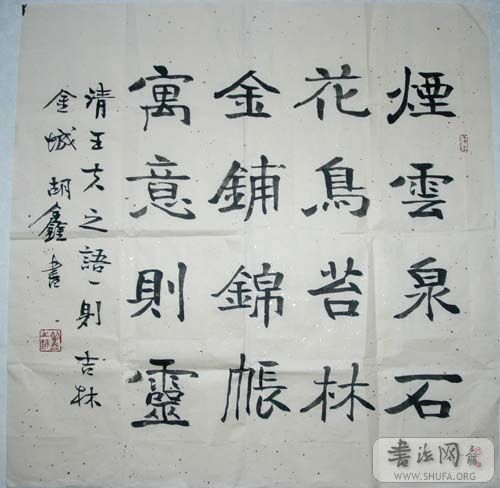 煙雲泉石
花鳥苔林
金鋪錦帳
寓意則靈
清王夫之語一則吉林
金城胡鑫書
書法网
WWW.SHUFA.ORG